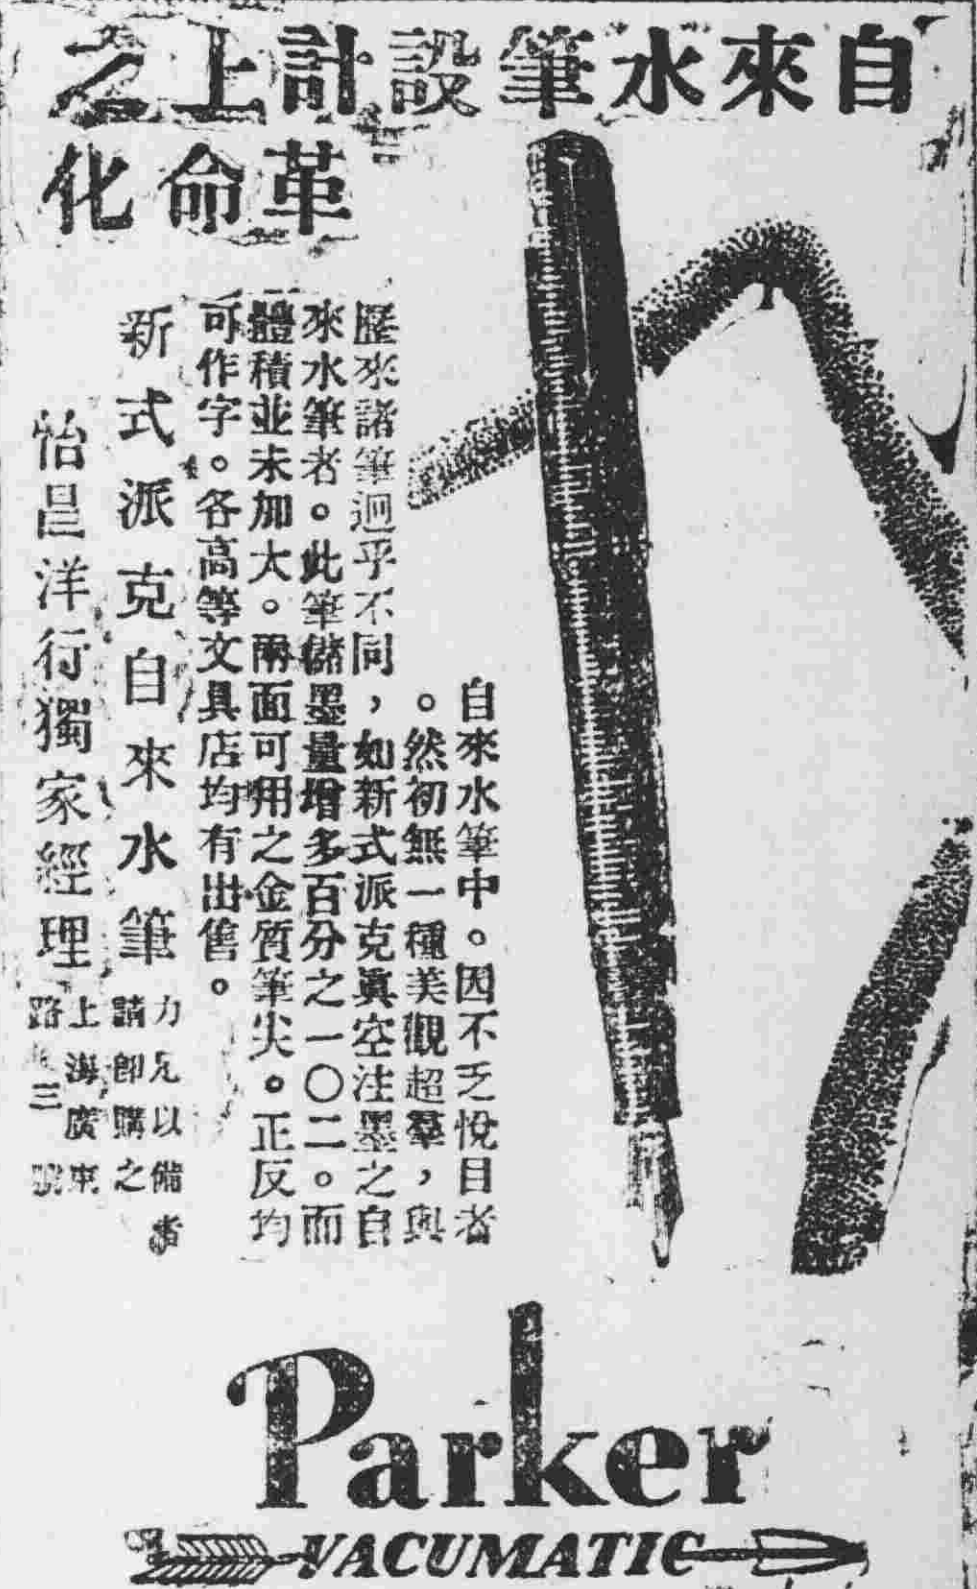 自來水筆設計上之
革命化
自來水筆中。因不乏悅目者
。然初無一種美觀超羣，與
歷來諸筆迥乎不同，如新式派克眞空注墨之自
來水筆者。此筆儲墨量增多百分之一〇二。而
體積並未加大。兩面可用之金質筆尖。正反均
可作字。各高等文具店均有出售。
新式派克自來水筆
力足以備者
請卽購之
怡昌洋行獨家經理
上海廣東
路三號
Parker
VACUMATIC